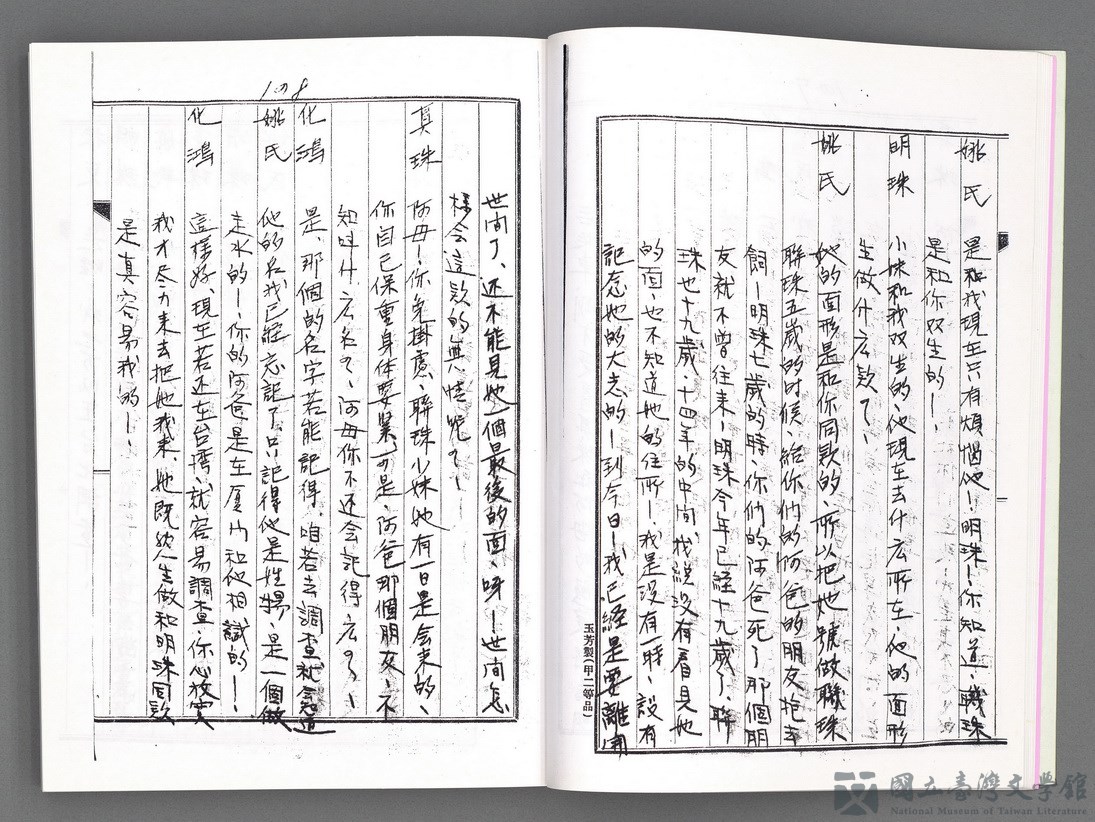 姚氏　是和我現在只有煩惱他！明珠！你知道、聯珠
是和你双生的！
明珠　小妹和我双生的、他現在去什広所在、他的面形
生做什広款了、
姚氏　她的面形是和你同款的、所以把她號做聯珠
聯珠五歲的时候、給你们的阿爸的朋友抱去
飼！明珠七歲的時、你们的阿爸死了那個朋
友就不曾往來！明珠今年已経十九歲了、聯
珠也十九歲、十四年的中间、我総没有看見她
的面、也不知道她的住所！、我是没有一時、說有
記念她的大志的！到今日！我已経是要離開
玉芳製(甲二等品)
世间了、还不能見她一個最後的面、呀！世间怎
様会這款的無情呢？！
真珠　阿母！你免掛慮、聯珠小妹她有一日是会来的、
你自己保重身体要緊、可是、阿爸那個朋友、不
知叫什広名？、阿母你不还会記得広？、！
化鴻　是、那個的名字若能記得、咱若去調查就会道
姚氏　他的名我已経忘記了、只記得他是姓楊、是一個做
走水的！、你的阿爸是在厦门和他相識的！
化鴻　這様好、現在若还在台湾、就容易調查、你心放寬
我才尽力来去把她找来、她既然生做和明珠同款
是真容易找的！、
108
國立臺灣文學館
National Museum of Taiwan Literature